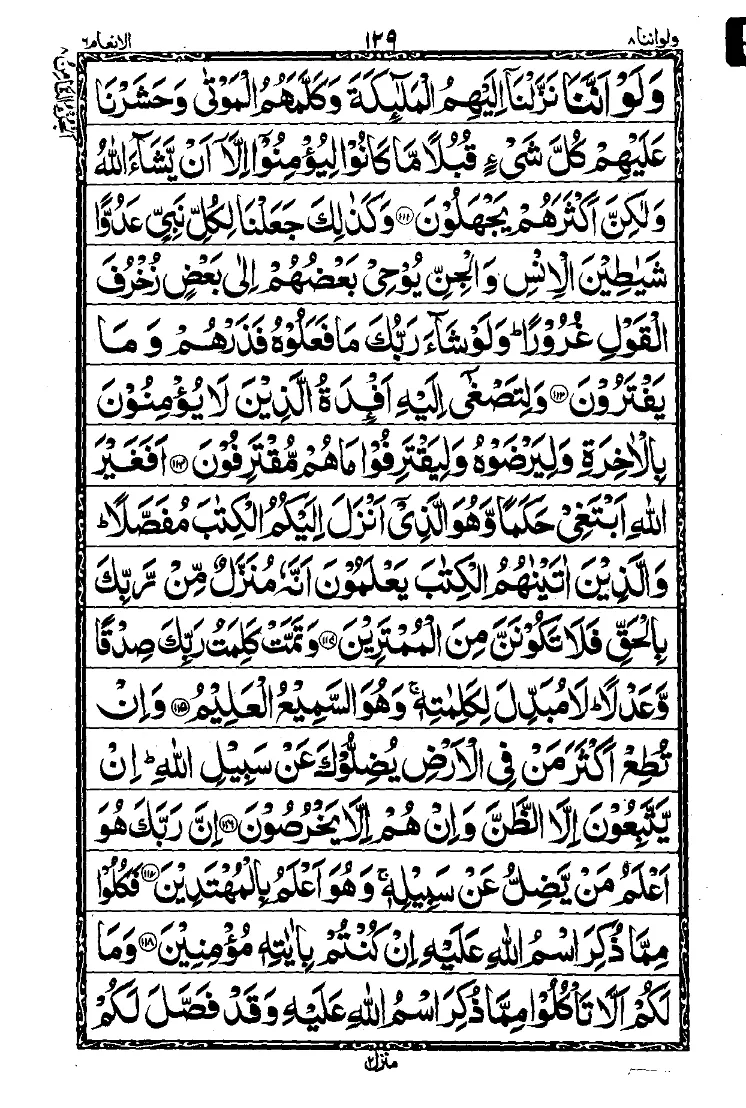 ولواننا ٨
١٢٩
الانعام ٦
وَلَوْ اَنَّنَا نَزَّلْنَاۤ اِلَيْهِمُ الْمَلٰٓئِكَةَ وَكَلَّمَهُمُ الْمَوْتٰى وَحَشَرْنَا
عَلَيْهِمْ كُلَّ شَيْءٍ قُبُلًا مَّا كَانُوْا لِيُؤْمِنُوْۤا اِلَّاۤ اَنْ يَّشَآءَ اللّٰهُ
وَلٰكِنَّ اَكْثَرَهُمْ يَجْهَلُوْنَ ﴿١١١﴾ وَكَذٰلِكَ جَعَلْنَا لِكُلِّ نَبِيٍّ عَدُوًّا
شَيٰطِيْنَ الْاِنْسِ وَالْجِنِّ يُوْحِيْ بَعْضُهُمْ اِلٰى بَعْضٍ زُخْرُفَ
الْقَوْلِ غُرُوْرًا ؕ وَلَوْ شَآءَ رَبُّكَ مَا فَعَلُوْهُ فَذَرْهُمْ وَمَا
يَفْتَرُوْنَ ﴿١١٢﴾ وَلِتَصْغٰۤى اِلَيْهِ اَفْـِٕدَةُ الَّذِيْنَ لَا يُؤْمِنُوْنَ
بِالْاٰخِرَةِ وَلِيَرْضَوْهُ وَلِيَقْتَرِفُوْا مَا هُمْ مُّقْتَرِفُوْنَ ﴿١١٣﴾ اَفَغَيْرَ
اللّٰهِ اَبْتَغِيْ حَكَمًا وَّهُوَ الَّذِيْۤ اَنْزَلَ اِلَيْكُمُ الْكِتٰبَ مُفَصَّلًا ؕ
وَالَّذِيْنَ اٰتَيْنٰهُمُ الْكِتٰبَ يَعْلَمُوْنَ اَنَّهٗ مُنَزَّلٌ مِّنْ رَّبِّكَ
بِالْحَقِّ فَلَا تَكُوْنَنَّ مِنَ الْمُمْتَرِيْنَ ﴿١١٤﴾ وَتَمَّتْ كَلِمَتُ رَبِّكَ صِدْقًا
وَّعَدْلًا ؕ لَا مُبَدِّلَ لِكَلِمٰتِهٖ ۚ وَهُوَ السَّمِيْعُ الْعَلِيْمُ ﴿١١٥﴾ وَاِنْ
تُطِعْ اَكْثَرَ مَنْ فِي الْاَرْضِ يُضِلُّوْكَ عَنْ سَبِيْلِ اللّٰهِ ؕ اِنْ
يَّتَّبِعُوْنَ اِلَّا الظَّنَّ وَاِنْ هُمْ اِلَّا يَخْرُصُوْنَ ﴿١١٦﴾ اِنَّ رَبَّكَ هُوَ
اَعْلَمُ مَنْ يَّضِلُّ عَنْ سَبِيْلِهٖ ۚ وَهُوَ اَعْلَمُ بِالْمُهْتَدِيْنَ ﴿١١٧﴾ فَكُلُوْا
مِمَّا ذُكِرَ اسْمُ اللّٰهِ عَلَيْهِ اِنْ كُنْتُمْ بِاٰيٰتِهٖ مُؤْمِنِيْنَ ﴿١١٨﴾ وَمَا
لَكُمْ اَلَّا تَاْكُلُوْا مِمَّا ذُكِرَ اسْمُ اللّٰهِ عَلَيْهِ وَقَدْ فَصَّلَ لَكُمْ
منزل ٢